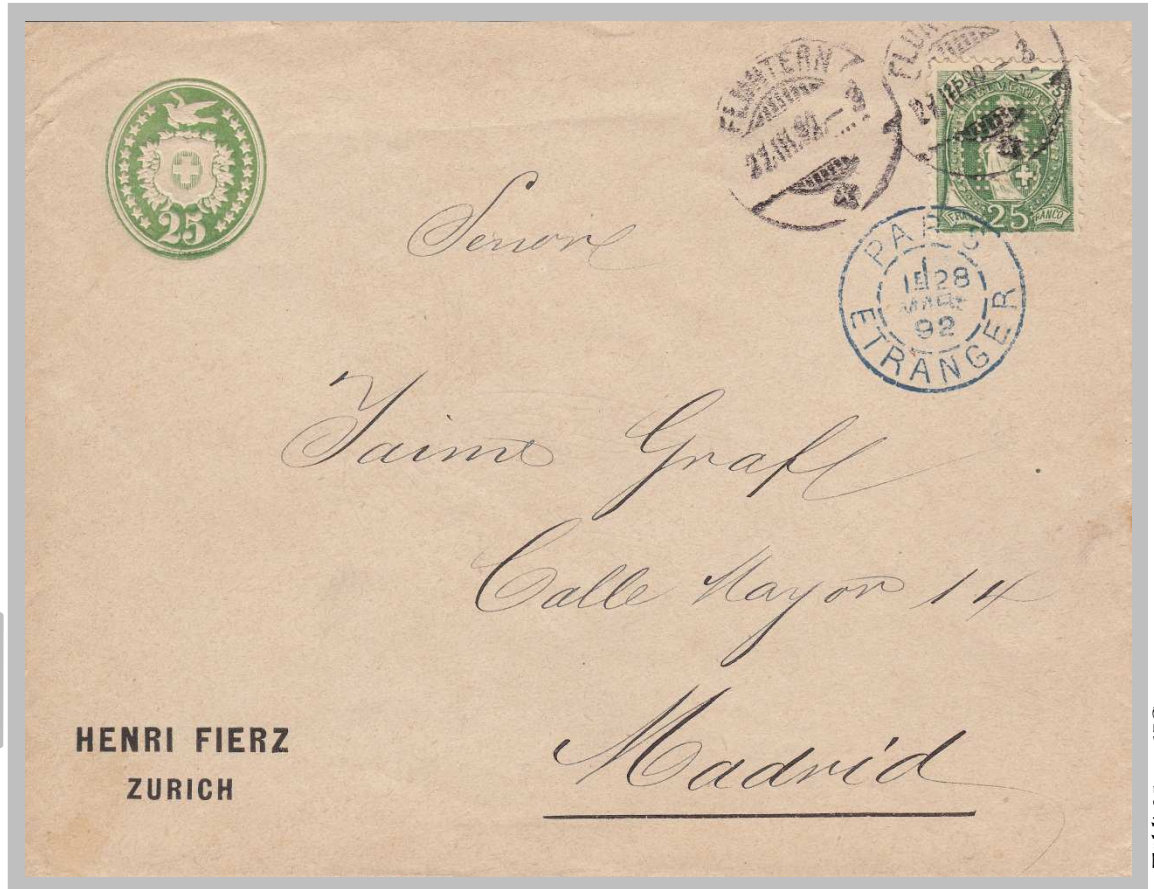 25
FLUNTERN
27.III.92.–3
FLUNTERN
HELVETIA
25
FRANCO
25
FRANCO
PARIS
28
92
ETRANGER
Senor
Jaime Grafl
Calle Mayor 14
Madrid
HENRI FIERZ
ZURICH